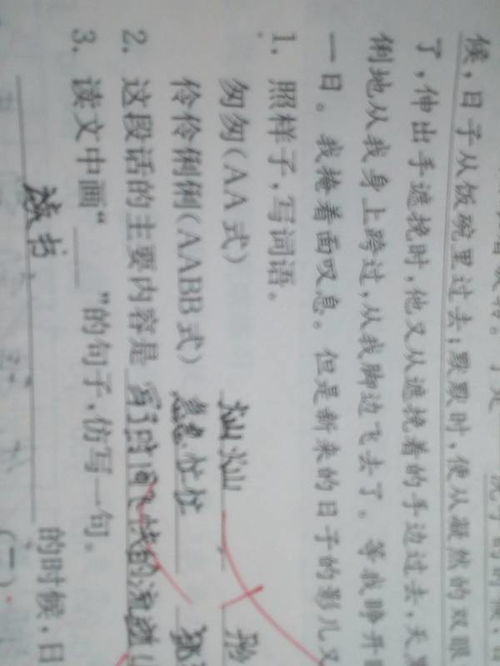 候,日子从饭碗里过去;默默时,便从凝然的双眼
了,伸出手遮挽时,他又从遮挽着的手边过去,天
俐地从我身上跨过,从我脚边飞去了。等我睁开
一日。我掩着面叹息。但是新来的日子的影儿又
1. 照样子,写词语。
匆匆(AA式) 灿灿
伶伶俐俐(AABB式) 急急忙忙
2. 这段话的主要内容是 写了时间飞快的流逝
3. 读文中画“____”的句子,仿写一句。
读书 的时候,日
(二)